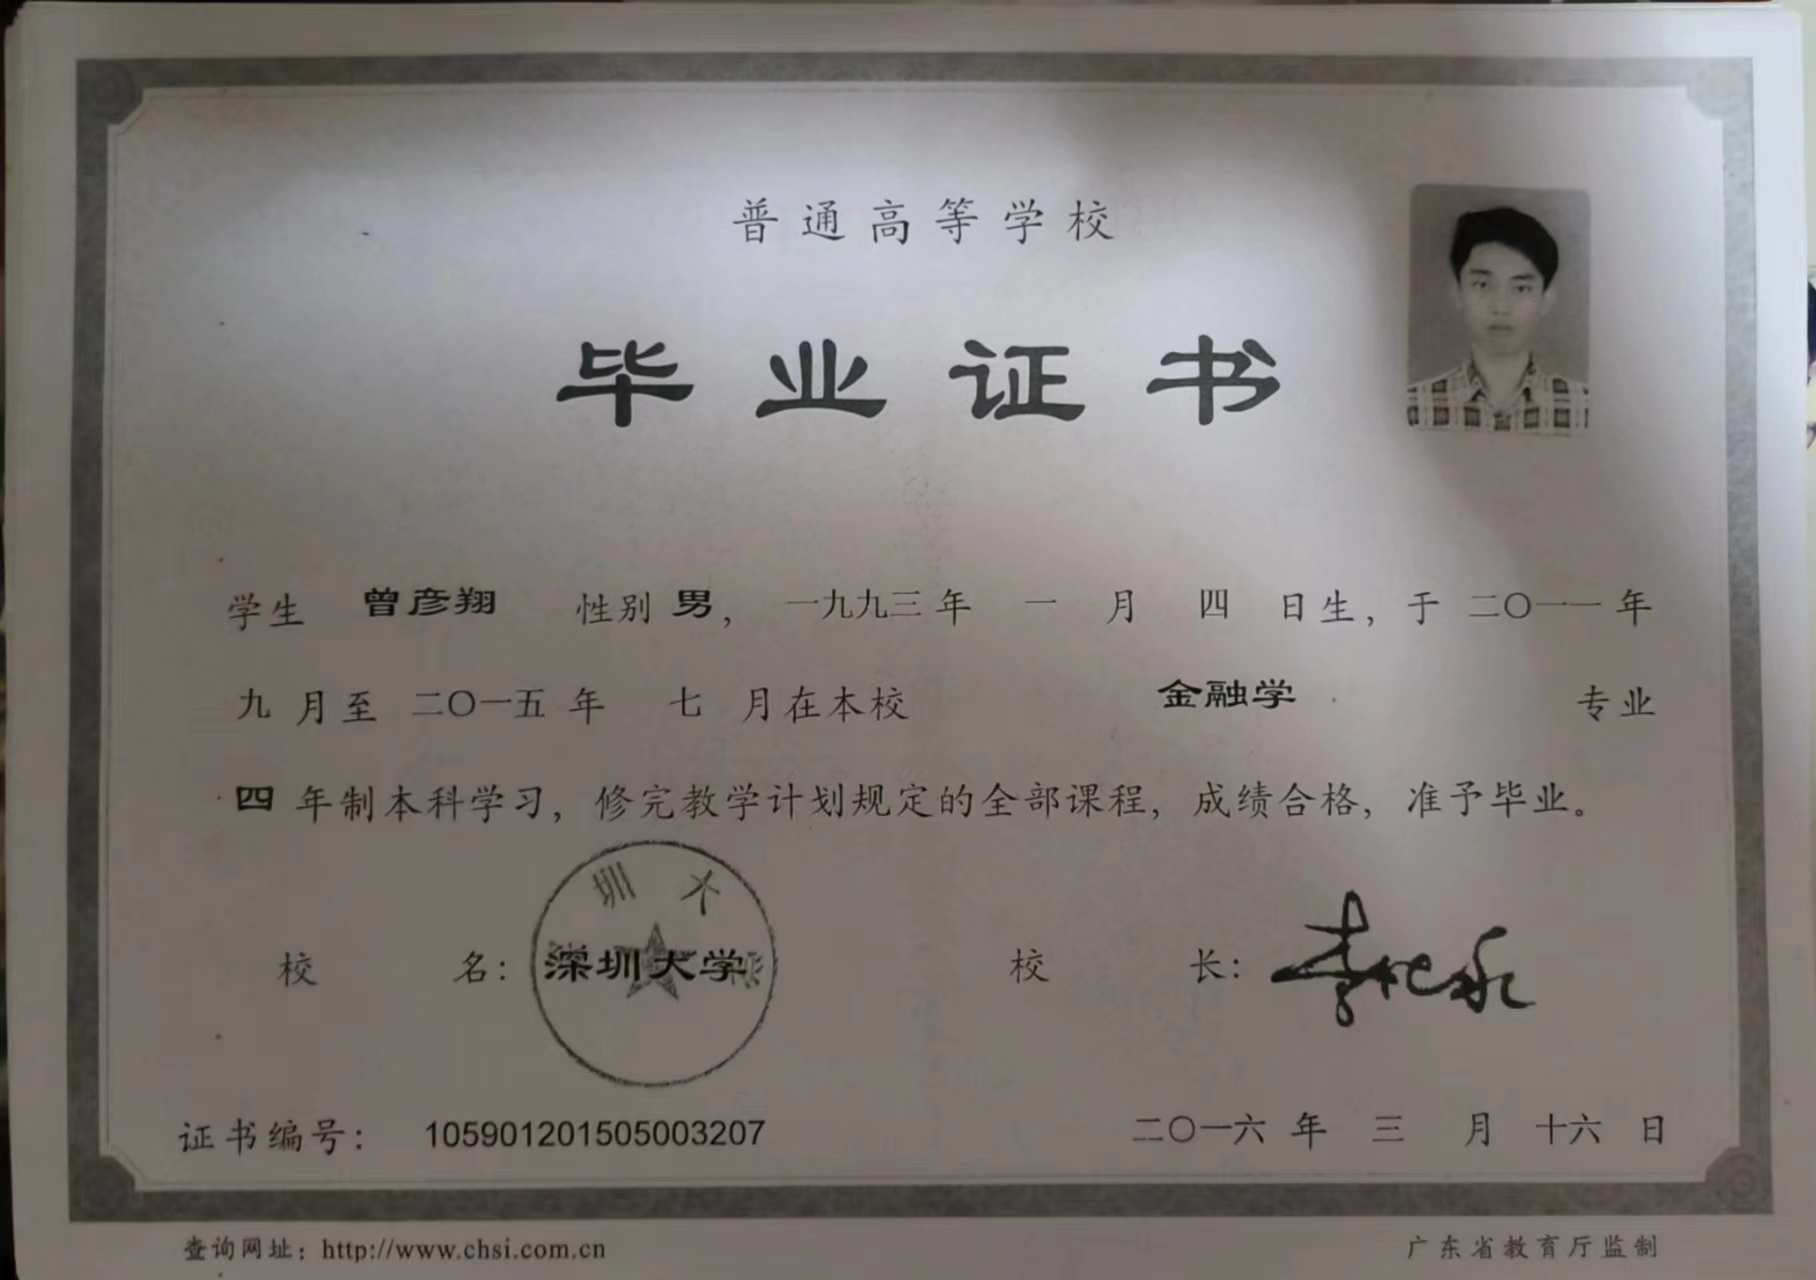 普通高等学校
毕业证书
学生 曾彦翔 性别 男， 一九九三 年 一 月 四 日生，于 二〇一一 年
九 月至 二〇一五 年 七 月在本校 金融学 专业
四 年制本科学习，修完教学计划规定的全部课程，成绩合格，准予毕业。
圳 大
校 名：深圳大学 校 长：
证书编号： 105901201505003207 二〇一六 年 三 月 十六 日
查询网址：http://www.chsi.com.cn 广东省教育厅监制